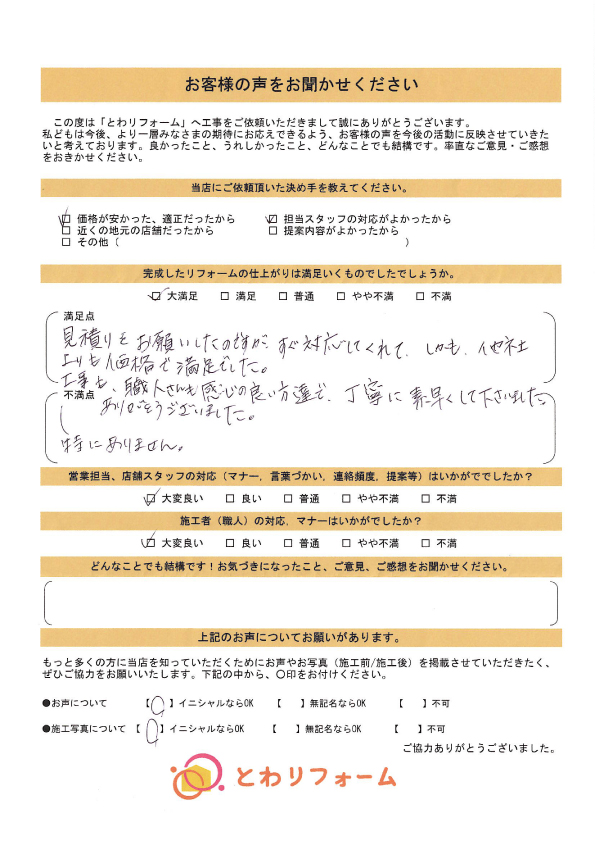 お客様の声をお聞かせください
この度は「とわリフォーム」へ工事をご依頼いただきまして誠にありがとうございます。
私どもは今後、より一層みなさまの期待にお応えできるよう、お客様の声を今後の活動に反映させていきた
いと考えております。良かったこと、うれしかったこと、どんなことでも結構です。率直なご意見・ご感想
をおきかせください。
当店にご依頼頂いた決め手を教えてください。
☑ 価格が安かった、適正だったから ☑ 担当スタッフの対応がよかったから
□ 近くの地元の店舗だったから □ 提案内容がよかったから
□ その他（ ）
完成したリフォームの仕上がりは満足いくものでしたでしょうか。
☑ 大満足 □ 満足 □ 普通 □ やや不満 □ 不満
満足点
見積りをお願いしたのですが、すぐ対応してくれて、しかも、他社
よりも価格で満足でした。
工事も、職人さんも感じの良い方達で、丁寧に素早くして下さいました。
不満点
ありがとうございました。
特にありません。
営業担当、店舗スタッフの対応（マナー，言葉づかい，連絡頻度，提案等）はいかがででしたか？
☑ 大変良い □ 良い □ 普通 □ やや不満 □ 不満
施工者（職人）の対応，マナーはいかがでしたか？
☑ 大変良い □ 良い □ 普通 □ やや不満 □ 不満
どんなことでも結構です！お気づきになったこと、ご意見、ご感想をお聞かせください。
上記のお声についてお願いがあります。
もっと多くの方に当店を知っていただくためにお声やお写真（施工前/施工後）を掲載させていただきたく、
ぜひご協力をお願いいたします。下記の中から、〇印をお付けください。
●お声について 【〇】イニシャルならOK 【 】無記名ならOK 【 】不可
●施工写真について 【〇】イニシャルならOK 【 】無記名ならOK 【 】不可
ご協力ありがとうございました。
とわリフォーム